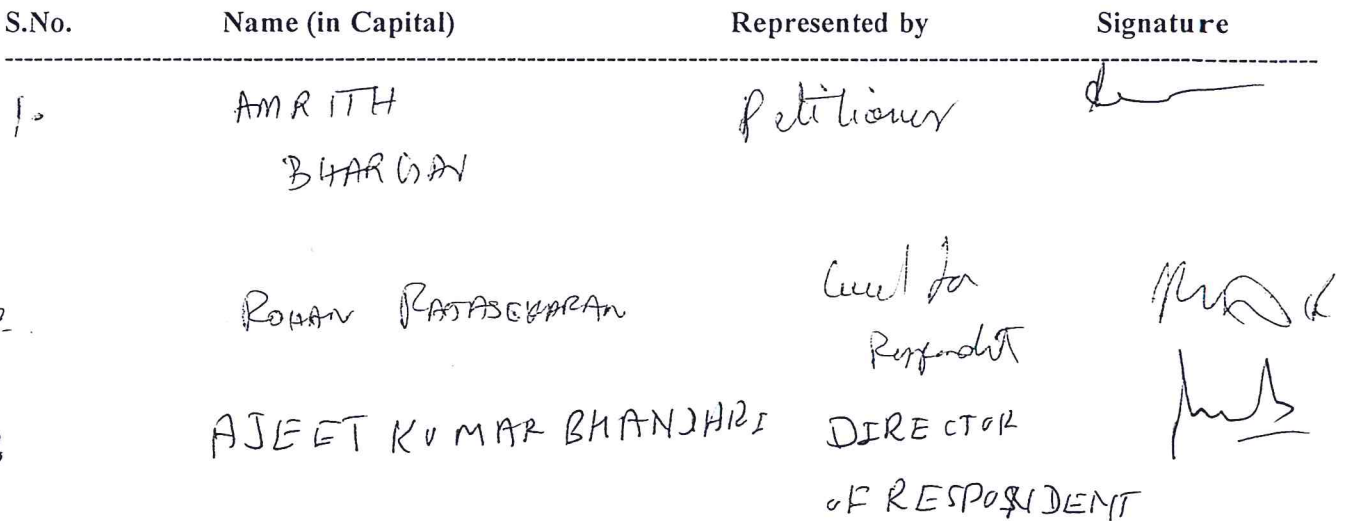 S.No. Name (in Capital) Represented by Signature
1. AMRITH Petitioner
BHARGAV
2. ROHAN RAJASEKARAN Counsel for
Respondent
AJEET KUMAR BHANJHRI DIRECTOR
OF RESPONDENT